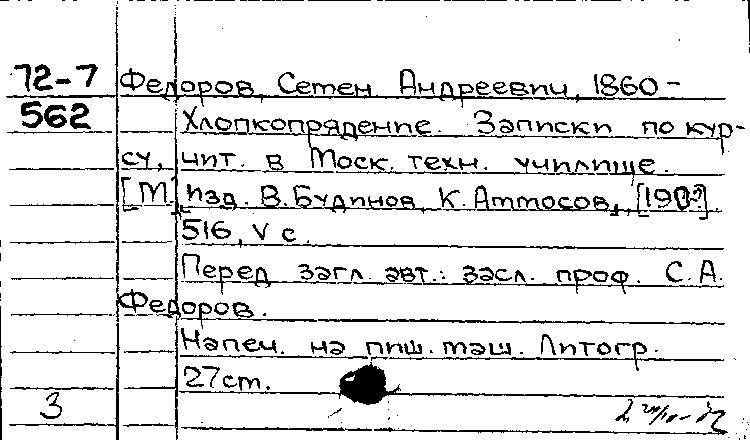 72-7 Федоров, Семен Андреевич, 1860-
562 Хлопкопрядение. Записки по кур-
су, чит. в Моск. техн. училище.
[М], Изд. В. Будинов, К. Аммосов, [190?]
516, V с.
Перед загл. авт.: засл. проф. С. А.
Федоров.
Напеч. на пиш. маш. Литогр.
27 cm.
3